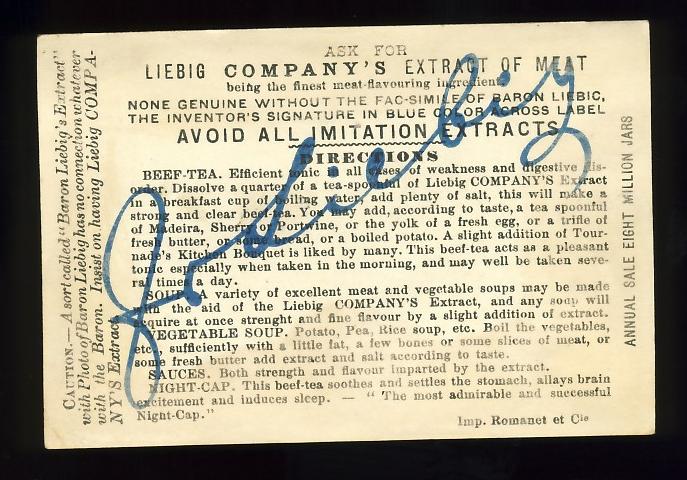 ASK FOR
LIEBIG COMPANY'S EXTRACT OF MEAT
being the finest meat-flavouring ingredient.
NONE GENUINE WITHOUT THE FAC-SIMILE OF BARON LIEBIC,
THE INVENTOR'S SIGNATURE IN BLUE COLOR ACROSS LABEL
AVOID ALL IMITATION EXTRACTS
DIRECTIONS
BEEF-TEA. Efficient tonic in all cases of weakness and digestive dis-
order. Dissolve a quarter of a tea-spoonful of Liebig COMPANY'S Extract
in a breakfast cup of boiling water, add plenty of salt, this will make a
strong and clear beef-tea. You may add, according to taste, a tea spoonful
of Madeira, Sherry or Portwine, or the yolk of a fresh egg, or a trifle of
fresh butter, or some bread, or a boiled potato. A slight addition of Tour-
nade's Kitchen Bouquet is liked by many. This beef-tea acts as a pleasant
tonic especially when taken in the morning, and may well be taken seve-
ral times a day.
SOUP. A variety of excellent meat and vegetable soups may be made
with the aid of the Liebig COMPANY'S Extract, and any soup will
acquire at once strenght and fine flavour by a slight addition of extract.
VEGETABLE SOUP. Potato, Pea, Rice soup, etc. Boil the vegetables,
etc., sufficiently with a little fat, a few bones or some slices of meat, or
some fresh butter add extract and salt according to taste.
SAUCES. Both strength and flavour imparted by the extract.
NIGHT-CAP. This beef-tea soothes and settles the stomach, allays brain
excitement and induces sleep. — "The most admirable and successful
Night-Cap."
Imp. Romanet et Cie
CAUTION.— A sort called "Baron Liebig's Extract"
with Photo of Baron Liebig has no connection whatever
with the Baron. Insist on having Liebig COMPA-
NY'S Extract
ANNUAL SALE EIGHT MILLION JARS
J v Liebig